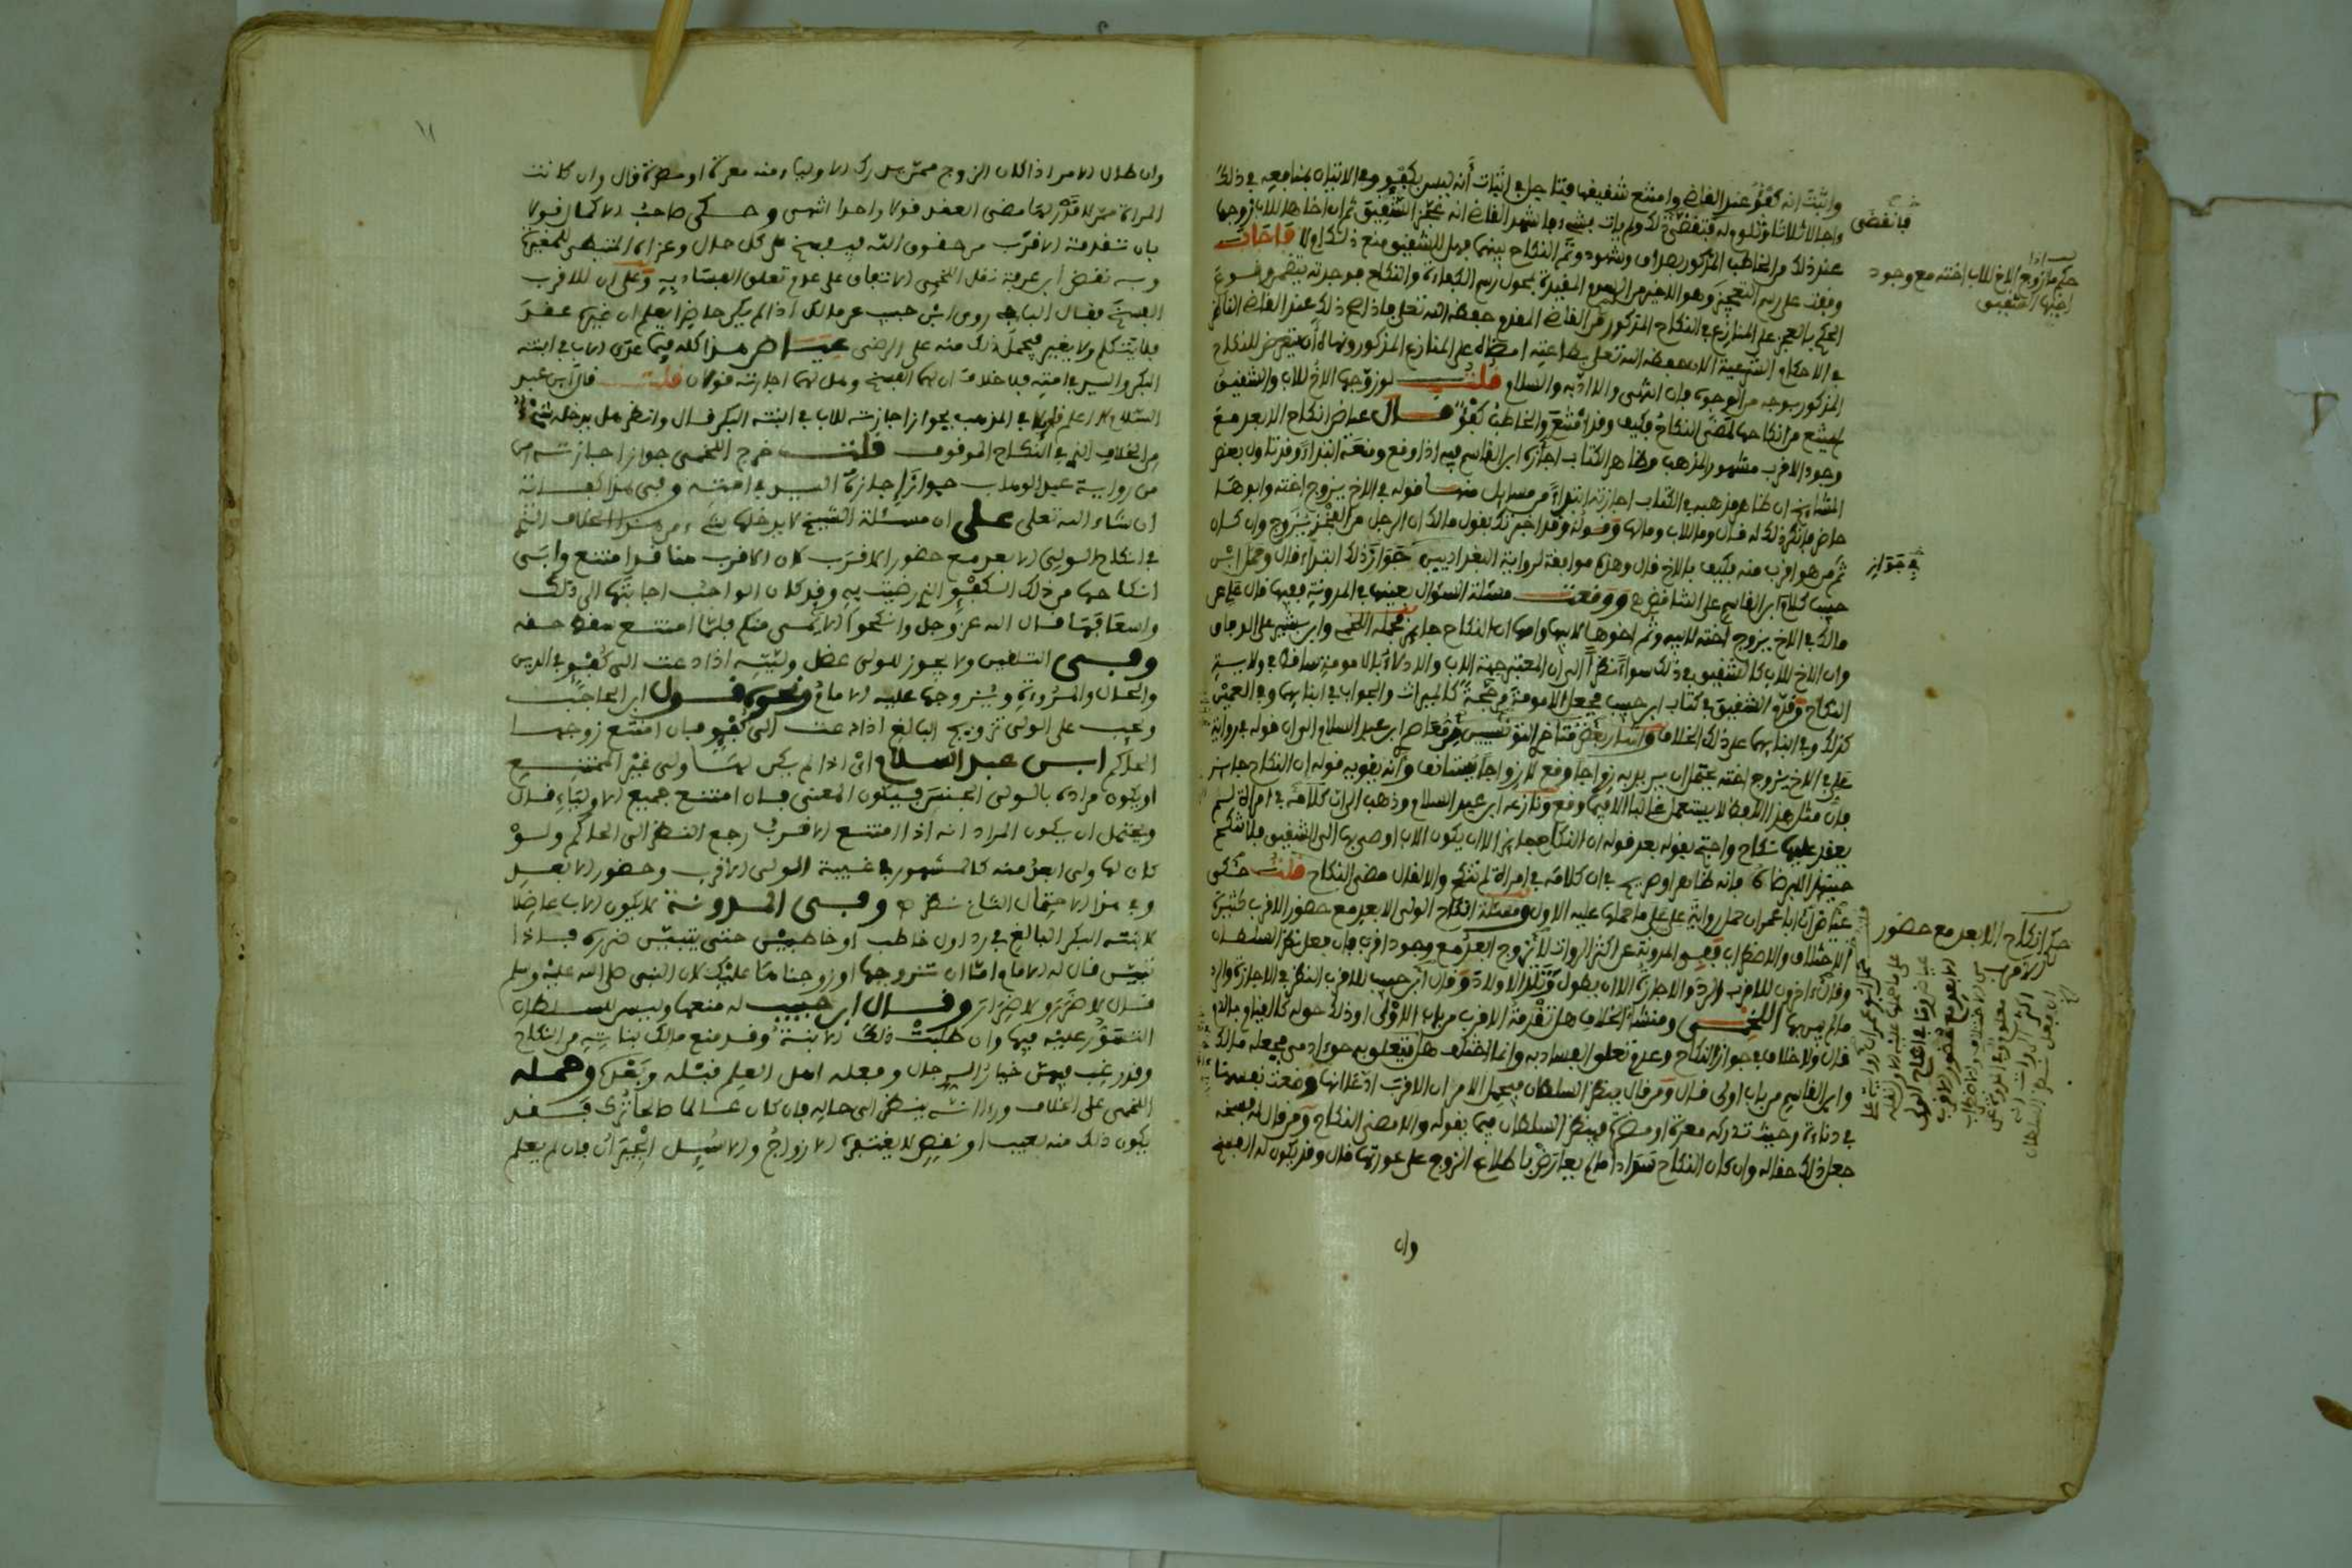 واثبت انه كفؤ عند القاضي وامتنع شقيقها فتاجل في اثبات أنه ليس بكفؤ وفي الاتيان بمنافعه في ذلك
واجلا ثلاثا وتلوم له فتقضى ذلك ولم يات بشيء واشهد القاضي انه عجز الشقيق ثم ان اخاها للاب زوجها
عند ذلك من الخاطب المذكور بصداق وشهود وتم النكاح بينهما فهل للشقيق منع ذلك ام لا فاجاب
وقفت على رسم التعجيز وهو الاخير من الرسوم المقيدة بمحول رسم الكفاءة والنكاح فوجدته يتضمن وقوع
الحكم بالعجز على المنازع في النكاح المذكور من القاضي المفدم حفظه الله تعلى فاذا صح ذلك عند القاضي الناظر
في الاحكام الشرعية الان حفظه الله تعلى بطاعته امضاه على المنازع المذكور ونهاه أن يتعرض للنكاح
المذكور بوجه من الوجوه فان انتهى والا ادبه والسلام قلت لو زوجها الاخ للاب والشقيق
لم يمتنع من انكاحها لمضى النكاح فكيف وقد امتنع والخاطب كفؤ قال عياض انكاح الابعد مع
وجود الاقرب مشهور المذهب وظاهر الكتاب اجازة ابن القاسم فيه اذا وقع ومنعه ابتداء وقد تاول بعض
المشايخ ان ظاهر مذهبه في الكتاب اجازته ابتداء من مسايل منها قوله في الاخ يزوج اخته وابوها
حاضر فانكر ذلك له قال وما للاب ومالها وقوله وقد اخبرتك بقول مالك ان الرجل من الفخذ يتزوج وان كان
ثم من هو اقرب منه فكيف بالاخ قال وهذه موافقة لرواية البغداديين جواز ذلك ابتداء قال وحمل ابن
حبيب كلام ابن القاسم على التناقض ووقعت مسئلة السؤال بعينها في المدونة ففيها قال علي عن
مالك في الاخ يزوج اخته لابيه وثم اخوها لابيها وامها ان النكاح جايز فحمله اللخمي وابن بشير على الوفاق
وان الاخ للاب كالشقيق في ذلك سواء نظرا الى أن المعتبر جهة الاب والادلاء بالامومة ساقط في ولاية
النكاح وقدم الشقيق في كتاب ابن حبيب فجعل الامومة مرجحة كالميراث والجواب في ابنايهما وفي العمين
كذلك وفي ابنايهما على ذلك الخلاف واشار بعض مشايخ التونسيين من معاصر ابن عبد السلام الى ان قوله في رواية
علي في الاخ يزوج اخته يحتمل ان يريد به زواجا وقع لا زواجا يستانف وأنه يقويه قوله ان النكاح جايز
فان مثل هذا اللفظ لا يستعمل غالبا الا فيما وقع ونازعه ابن عبد السلام وذهب الى ان كلامه في امراة لم
يعقد عليها نكاح واحتج بقوله بعد قوله ان النكاح جايز الا ان يكون الاب اوصى بها الى الشقيق فلا تنكح
حينئذ الا برضاه فانه ظاهر او صريح في ان كلامه في امراة لم تنكح والا لقال مضى النكاح قلت حكى
عياض ان ابا عمران حمل رواية علي على ما حملها عليه الاول ومسئلة انكاح الولي الابعد مع حضور الاقرب كثيرة
الاختلاف والاضطراب ففي المدونة عن اكثر الرواة لا يزوج ابعد مع وجود اقرب فان فعل نظر السلطان
وقال اخرون للاقرب الرد والاجازة الا ان يطول وتلد الاولاد وقال ابن حبيب للاقرب النظر في الاجازة والرد
ما لم يبن بها اللخمي ومنشأ الخلاف هل تقدمة الاقرب من باب الاولى او ذلك حق له كالقيام بالدم
قال ولا خلاف في جواز النكاح وعدم تعلق الفساد به وانما اختلف هل يتعلق به حق ادمي فجعله مالك
وابن القاسم من باب اولى قال ومن قال ينظر السلطان فيحمل الامر ان الاقرب ادعى انها وضعت نفسها
في دناءة وحيث تدركه معرة او مضرة فينظر السلطان فيما يقوله والا مضى النكاح ومن قال له فسخه
جعل ذلك حقا له وان كان النكاح سدادا ما لم يعارض باطلاع الزوج على عورتها قال وقد يكون له الفسخ
وان
فانقضى
حكم ما اذا زوج الاخ للاب اخته مع وجود
اخيها الشقيق
في جواز
حكم انكاح الابعد مع حضور
الاقرب
١١
وان طال الامر اذا كان الزوج ممن يدرك الاولياء منه معرة او مضرة قال وان كانت
المراة ممن لا قدر لها مضى العقد قولا واحدا انتهى وحكى صاحب الاكمال قولا
بان تقدمة الاقرب من حقوق الله فيفسخ على كل حال وعزاه المتيطي للمغيرة
وبه نقض ابن عرفة نقل اللخمي الاتفاق على عدم تعلق الفساد به وعلى ان للاقرب
الفسخ فقال الباجي روى ابن حبيب عن مالك اذا لم يكن حاضرا يعلم ان غيره عقد
فلا يتكلم ولا يغير فيحمل ذلك منه على الرضى عياض هذا كله فيما عدى الاب في ابنته
البكر والسيد في امته فلا خلاف ان لهما الفسخ وهل لهما اجازته قولان قلت قال ابن عبد
السلام لا اعلم قولا في المذهب بجواز اجازته للاب في ابنته البكر قال وانظر هل يدخله شيء
من الخلاف الذي في النكاح الموقوف قلت خرج اللخمي جواز اجازته من
من رواية عبد الوهاب جواز اجازة السيد في امته وفي هذا
ان شاء الله تعلى على ان مسئلة الشيخ لا يدخلها شيء من هذا الخلاف الذي
في انكاح الولي الابعد مع حضور الاقرب لان الاقرب هنا قد امتنع وابى
انكاحها من ذلك الكفؤ الذي رضيت به وقد كان الواجب اجابتها الى ذلك
واسعافها قال الله عز وجل وانكحوا الايمى منكم فلما امتنع سقط حقه
وفي التلقين ولا يجوز للولي عضل وليته اذا دعت الى كفؤ في الدين
والحال والمروءة ويزوجها عليه الامام ونحوه قول ابن الحاجب
ويجب على الولي تزويج البالغ اذا دعت الى كفؤ فان امتنع زوجها
الحاكم ابن عبد السلام اي اذا لم يكن لها ولي غير الممتنع
او يكون مراده بالولي الجنس فيكون المعنى فان امتنع جميع الاولياء قال
ويحتمل ان يكون المراد انه اذا امتنع الاقرب رجع النظر الى الحاكم ولو
كان لها ولي ابعد منه كالمشهور في غيبة الولي الاقرب وحضور الابعد
وفي هذا الاحتمال الثاني نظر وفي المدونة لا يكون الاب عاضلا
لابنته البكر البالغ في رد اول خاطب او خاطبين حتى يتبين ضرره فاذا
تبين قال له الامام اما ان تزوجها او زوجناها عليك لان النبي صلى الله عليه وسلم
قال لا ضرر ولا ضرار وقال ابن حبيب له منعها وليس للسلطان
التسور عليه فيها وان طلبت ذلك الابنة وقد منع مالك بناته من النكاح
وقد رغب فيهن خيار الرجال وفعله اهل العلم قبله وبعده وحمله
اللخمي على الخلاف وراى انه ينظر الى حاله فان كان عالما صالحا ترك فقد
يكون ذلك منه لعيب او نقص لا يغتفره الازواج والا سئل الجيران فان لم يعلم